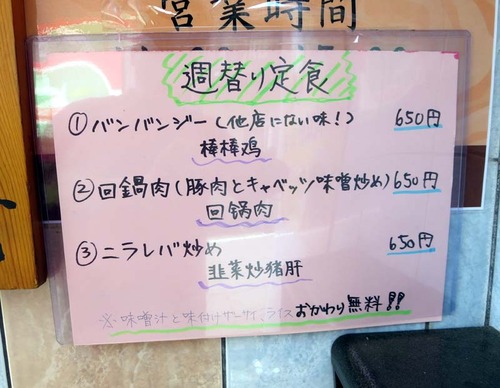 営業時間
週替り定食
①バンバンジー(他店にない味!) 650円
棒棒鸡
②回鍋肉(豚肉とキャベッツ味噌炒め) 650円
回锅肉
③ニラレバ炒め 650円
韭菜炒猪肝
※味噌汁と味付けザーサイ、ライスおかわり無料!!